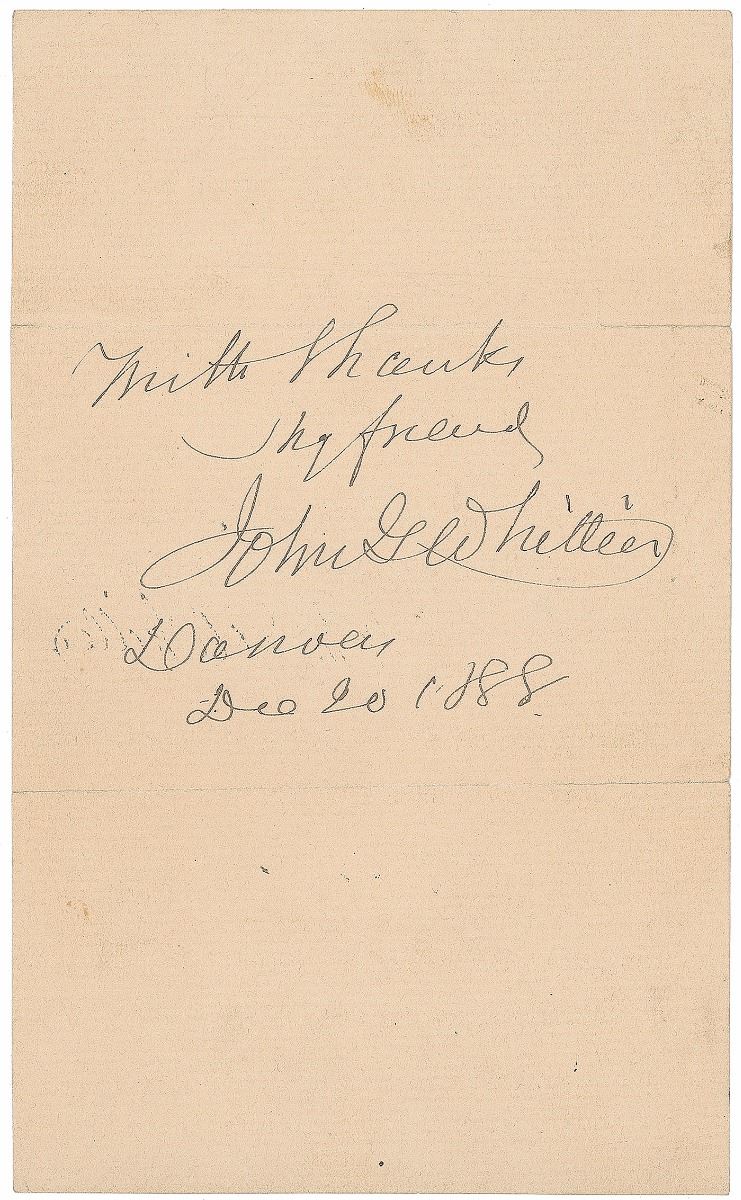 With thanks
thy friend
John G Whittier
Danvers
Dec 20 1888